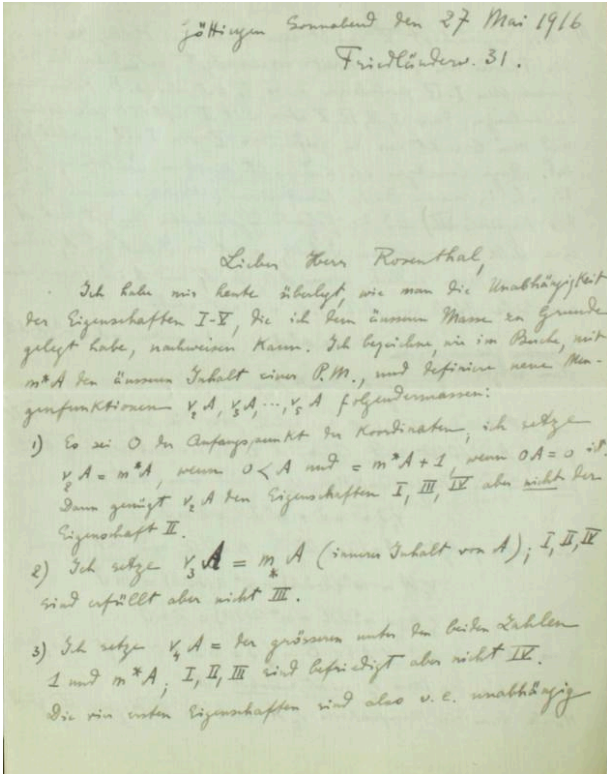 Göttingen Sonnabend den 27 Mai 1916
Friedländerw. 31.
Lieber Herr Rosenthal,
Ich habe mir heute überlegt, wie man die Unabhängigkeit
der Eigenschaften I-V, die ich dem äussern Masse zu Grunde
gelegt habe, nachweisen kann. Ich bezeichne, wie im Buche, mit
m*A den äusseren Inhalt einer P.M., und definiere neue Men-
genfunktionen ν₂A, ν₃A, ..., ν₅A folgendermassen:
1) Es sei O der Anfangspunkt der Koordinaten, ich setze
ν₂A = m*A, wenn O < A und = m*A + 1, wenn OA = 0 ist.
Dann genügt ν₂A den Eigenschaften I, III, IV aber nicht der
Eigenschaft II.
2) Ich setze ν₃A = m_*A (innerer Inhalt von A); I, II, IV
sind erfüllt aber nicht III.
3) Ich setze ν₄A = der grösseren unter den beiden Zahlen
1 und m*A; I, II, III sind befriedigt aber nicht IV.
Die vier ersten Eigenschaften sind also v. e. unabhängig